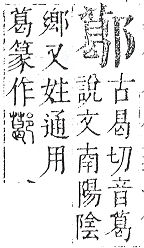 古曷切音葛
說文南陽陰
鄉又姓通用
葛篆作